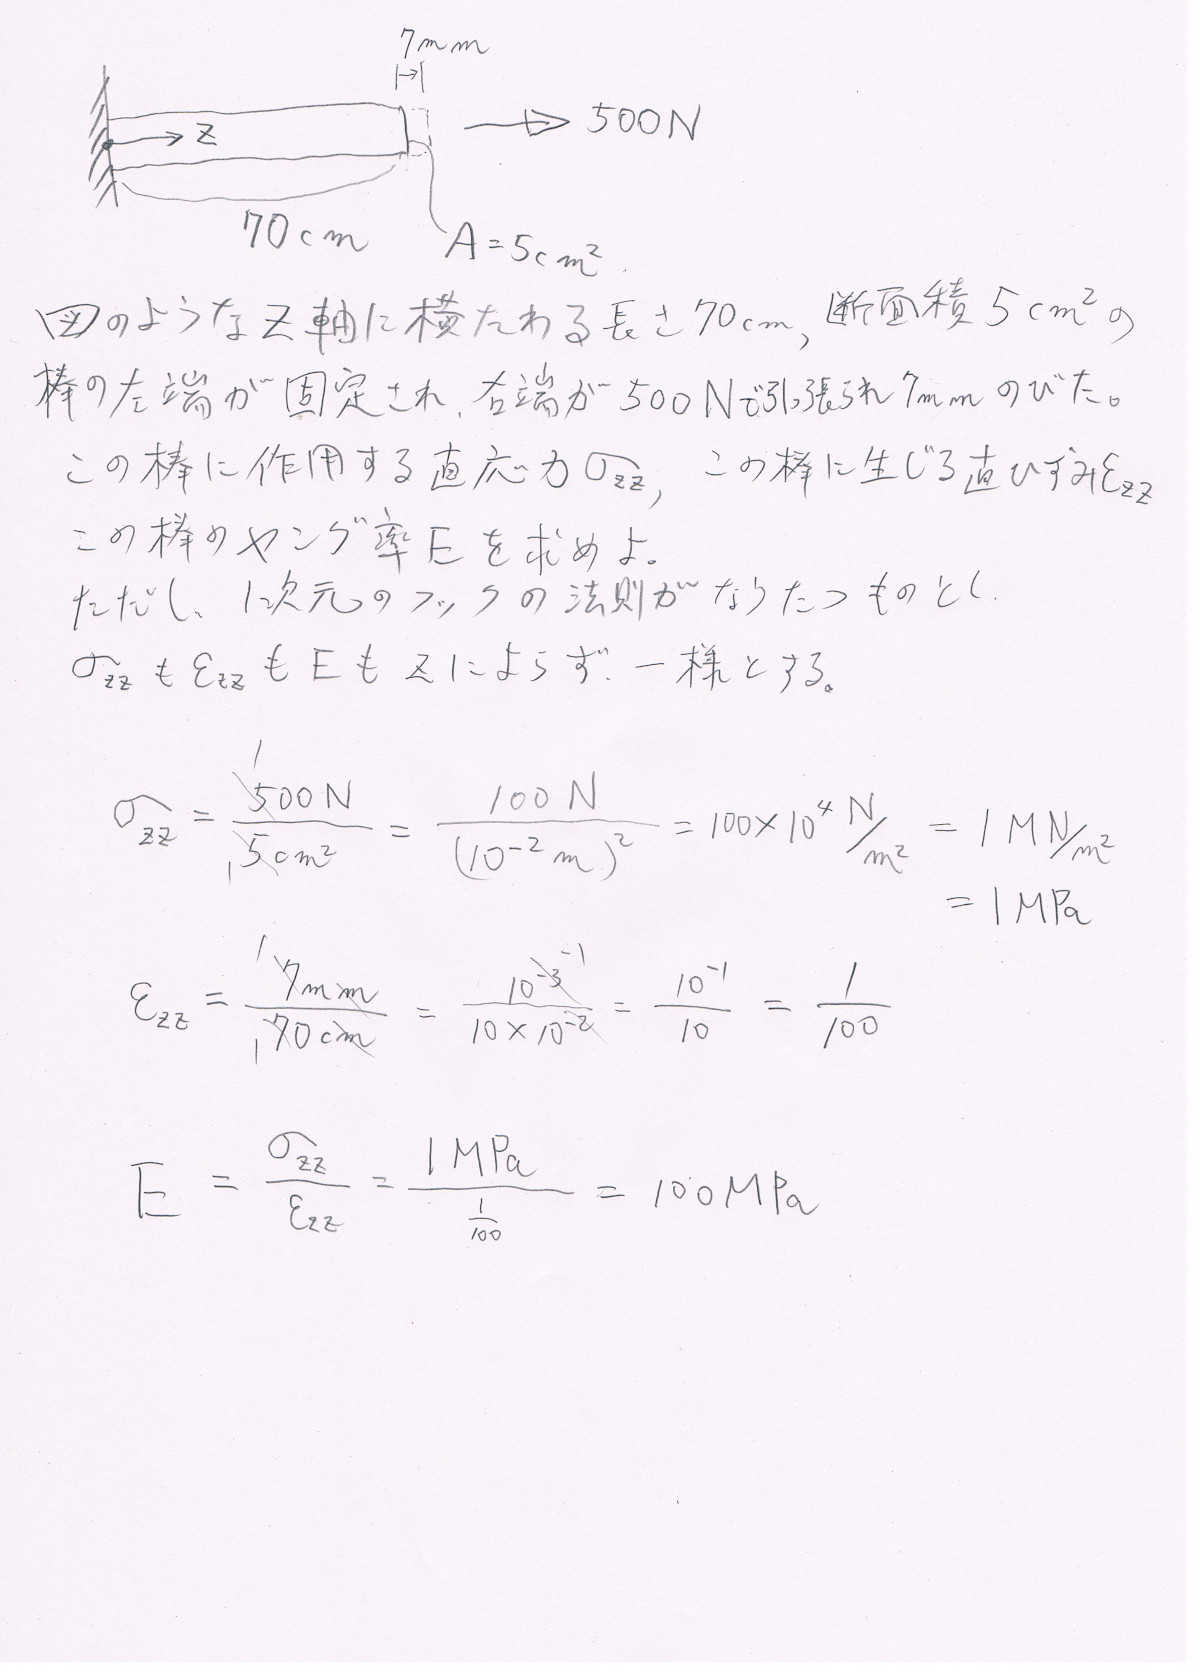 7mm
z
500N
70cm
A=5cm².
図のようなz軸に横たわる長さ70cm,断面積5cm²の
棒の左端が固定され、右端が500Nで引っ張られ7mmのびた。
この棒に作用する直応力σzz, この棒に生じる直ひずみεzz
この棒のヤング率Eを求めよ。
ただし、1次元のフックの法則がなりたつものとし、
σzzもεzzもEもzによらず、一様とする。
σzz = 500N/5cm² = 100N/(10⁻²m)² = 100×10⁴ N/m² = 1MN/m²
= 1MPa
εzz = 7mm/70cm = 10⁻³/(10×10⁻²) = 10⁻¹/10 = 1/100
E = σzz/εzz = 1MPa/(1/100) = 100MPa